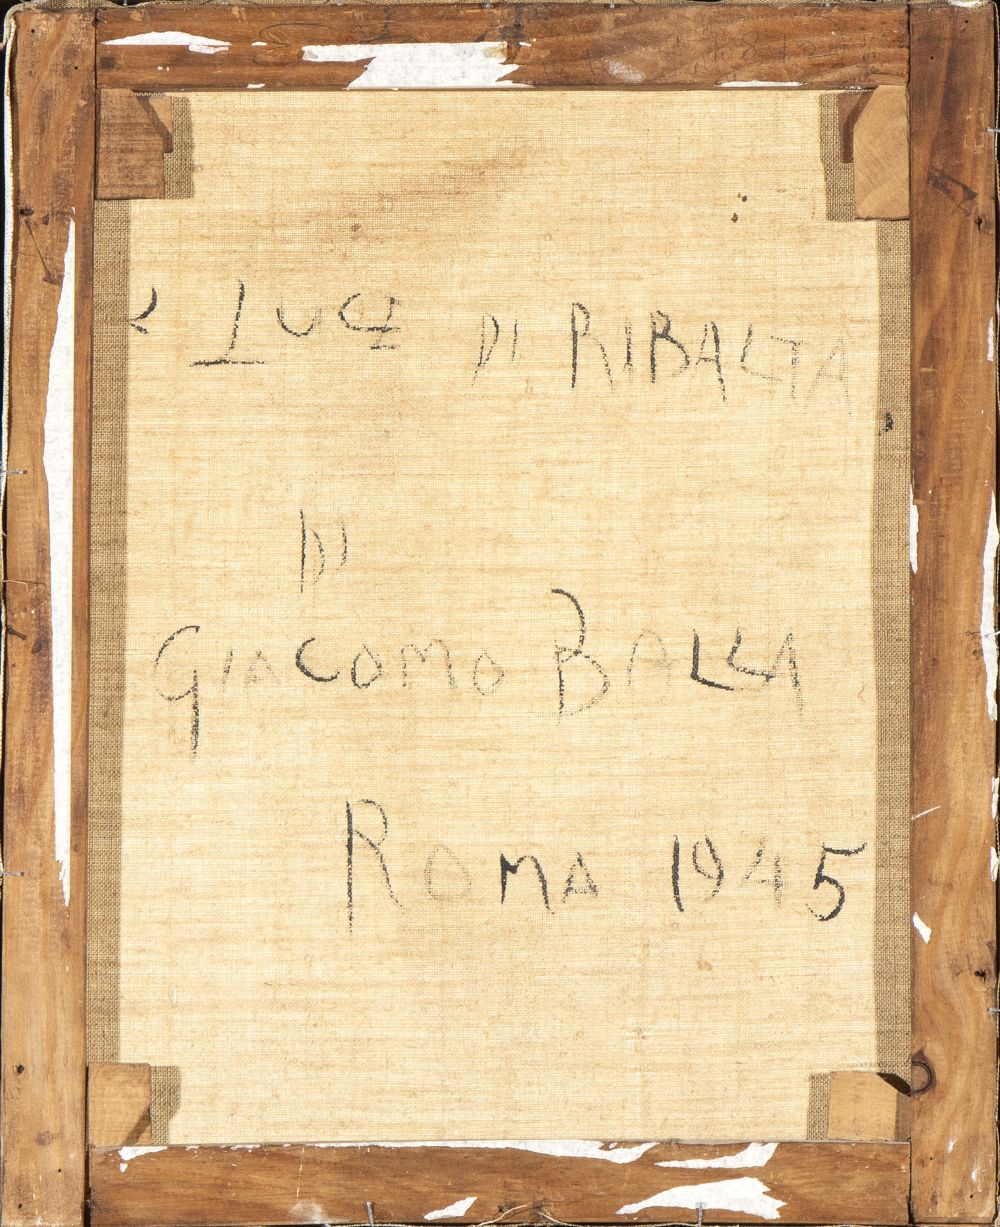 LUCE DI RIBALTA
DI
GIACOMO BALLA
ROMA 1945